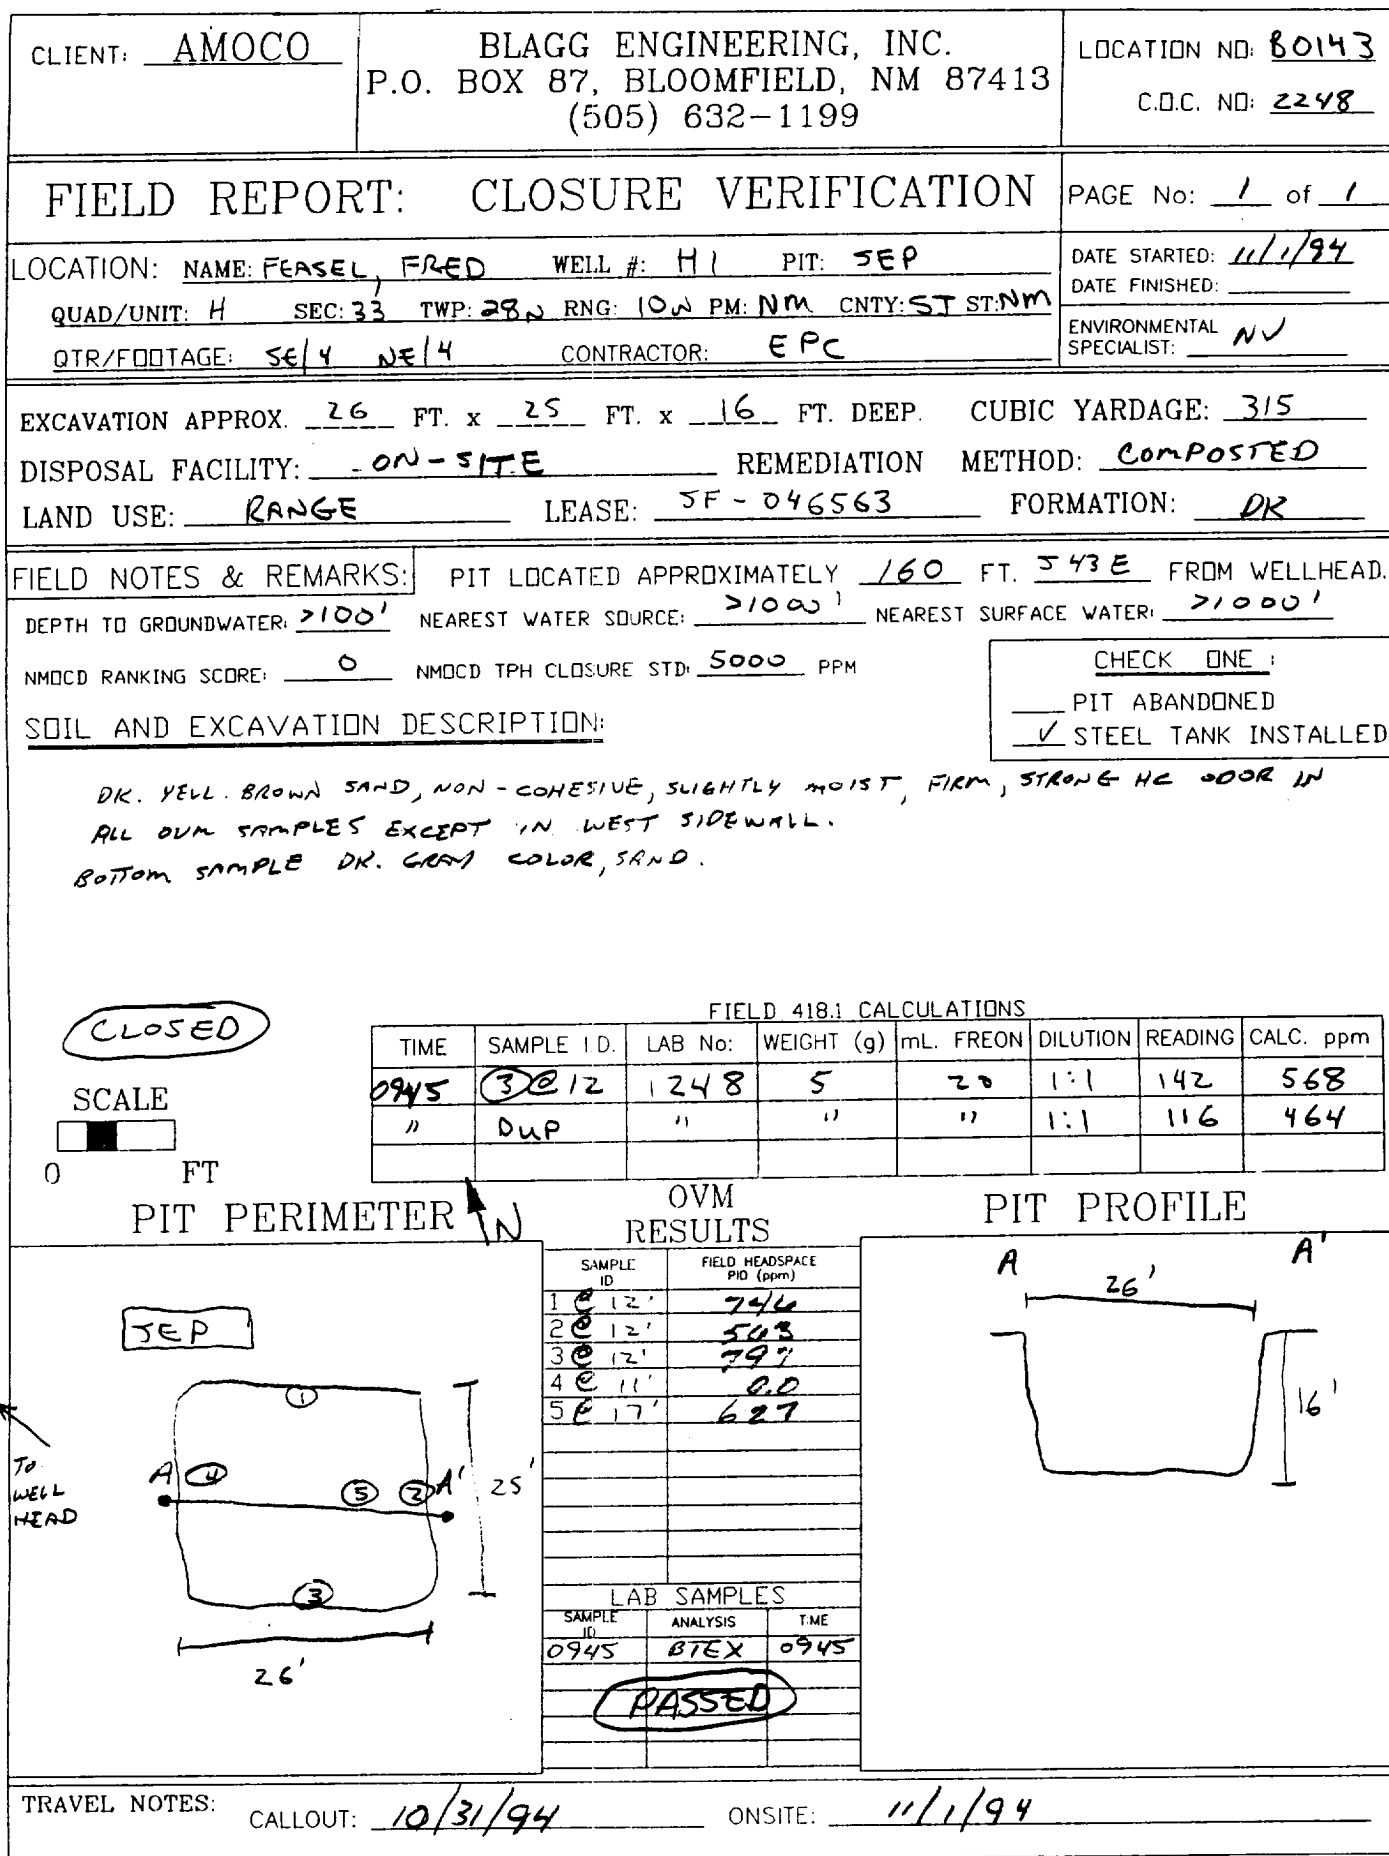 CLIENT: AMOCO
BLAGG ENGINEERING, INC.
P.O. BOX 87, BLOOMFIELD, NM 87413
(505) 632-1199
LOCATION NO: B0143
C.O.C. NO: 2248
FIELD REPORT: CLOSURE VERIFICATION
PAGE No: 1 of 1
LOCATION: NAME: FEASEL, FRED WELL #: H1 PIT: SEP
QUAD/UNIT: H SEC: 33 TWP: 28N RNG: 10W PM: NM CNTY: SJ ST: NM
QTR/FOOTAGE: SE/4 NE/4 CONTRACTOR: EPC
DATE STARTED: 11/1/94
DATE FINISHED:
ENVIRONMENTAL SPECIALIST: NV
EXCAVATION APPROX. 26 FT. x 25 FT. x 16 FT. DEEP. CUBIC YARDAGE: 315
DISPOSAL FACILITY: ON-SITE REMEDIATION METHOD: COMPOSTED
LAND USE: RANGE LEASE: SF-046563 FORMATION: DK
FIELD NOTES & REMARKS: PIT LOCATED APPROXIMATELY 160 FT. S43E FROM WELLHEAD.
DEPTH TO GROUNDWATER: >100' NEAREST WATER SOURCE: >1000' NEAREST SURFACE WATER: >1000'
NMOCD RANKING SCORE: 0 NMOCD TPH CLOSURE STD: 5000 PPM
CHECK ONE :
PIT ABANDONED
✓ STEEL TANK INSTALLED
SOIL AND EXCAVATION DESCRIPTION:
DK. YELL. BROWN SAND, NON-COHESIVE, SLIGHTLY MOIST, FIRM, STRONG HC ODOR IN
ALL OVM SAMPLES EXCEPT IN WEST SIDEWALL.
BOTTOM SAMPLE DK. GRAY COLOR, SAND.
CLOSED
SCALE
0 FT
FIELD 418.1 CALCULATIONS
TIME SAMPLE I.D. LAB No: WEIGHT (g) mL. FREON DILUTION READING CALC. ppm
0945 3 @ 12 1248 5 20 1:1 142 568
" DUP " " " 1:1 116 464
PIT PERIMETER N
OVM
RESULTS
PIT PROFILE
SAMPLE ID FIELD HEADSPACE PID (ppm)
1 @ 12'
2 @ 12' 543
3 @ 12' 797
4 @ 11' 0.0
5 @ 17' 627
SEP
1
A 4 5 2 A'
3
25'
26'
TO
WELL
HEAD
A A'
26'
16'
LAB SAMPLES
SAMPLE ID ANALYSIS TIME
0945 BTEX 0945
PASSED
TRAVEL NOTES: CALLOUT: 10/31/94 ONSITE: 11/1/94